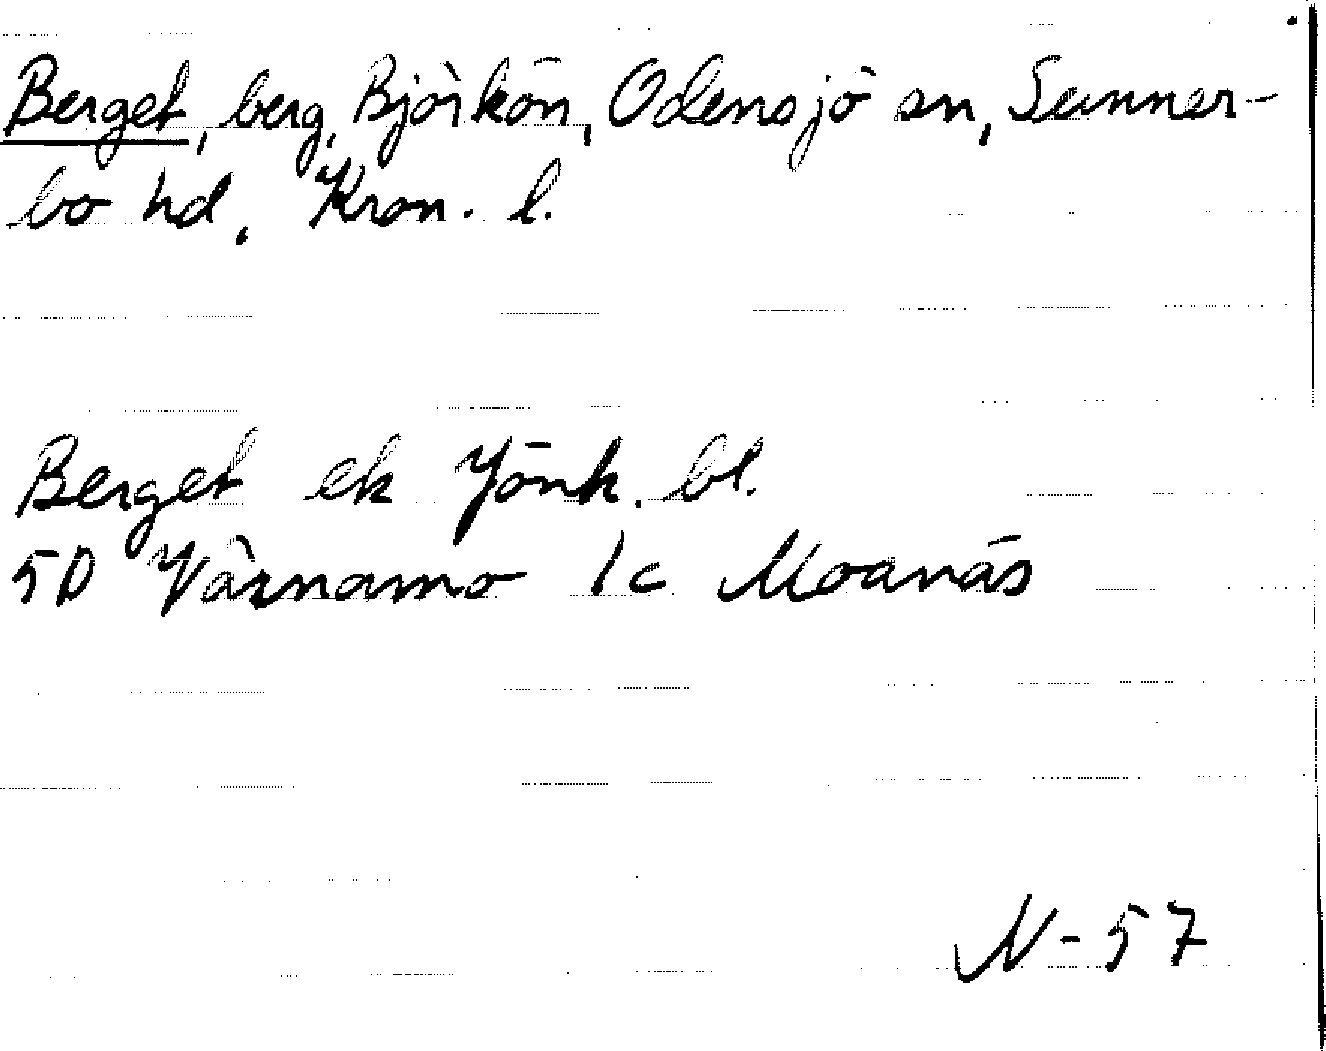 Berget, berg, Björkön, Odensjö sn, Sunner-
bo hd, Kron. l.
Berget ek Jönk. bl.
5D Värnamo 1c Moanäs
N-57